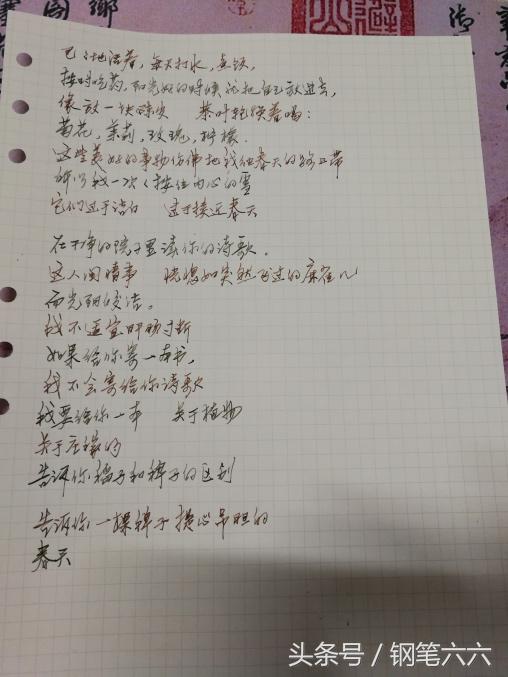 巴々地活着,每天打水,煮饭,
按时吃药,阳光好的时候就把自己放进去,
像放一块陈皮 茶叶轮换着喝:
菊花,茉莉,玫瑰,柠檬.
这些美好的事物仿佛把我往春天的路上带
所以我一次々按住内心的雪
它们过于洁白 过于接近春天
在干净的院子里读你的诗歌.
这人间情事 恍惚如突然飞过的麻雀儿
而光阴皎洁。
我不适宜肝肠寸断
如果给你寄一本书,
我不会寄给你诗歌
我要给你一本 关于植物
关于庄稼的
告诉你稻子和稗子的区别
告诉你一棵稗子提心吊胆的
春天
头条号 / 钢笔六六